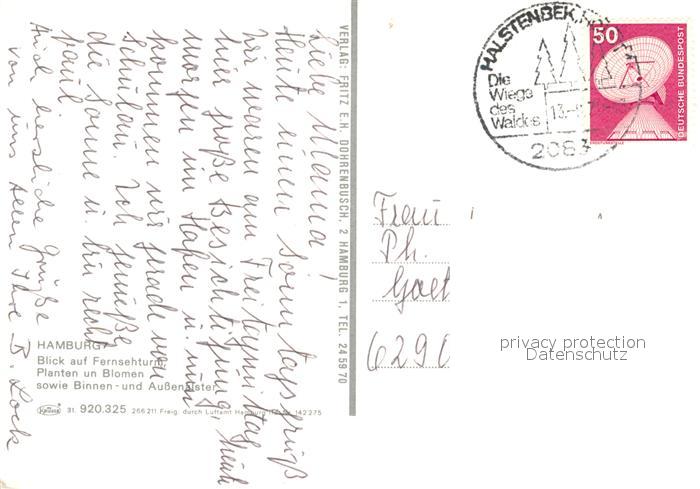 Liebe Mama!
Heute einen Sonntagsgruß
Wir waren am Freitagmittag
hier große Besichtigung, heute
morgen im Hafen u. nun
kommen wir gerade von
Schulau. Ich genieße
die Sonne u. bin recht
faul.
Auch herzliche Grüße
von uns allen Ihre B. Lock
VERLAG: FRITZ E.H. DOHRENBUSCH, 2 HAMBURG 1, TEL. 24 59 70
HAMBURG
Blick auf Fernsehturm,
Planten un Blomen
sowie Binnen- und Außenalster
31. 920.325 266 211 Freig. durch Luftamt Hamburg 142 275
HALSTENBEK
Die
Wiege
des
Waldes
13.
2083
50
DEUTSCHE BUNDESPOST
Frau
Ph.
Goet
6290
privacy protection
Datenschutz